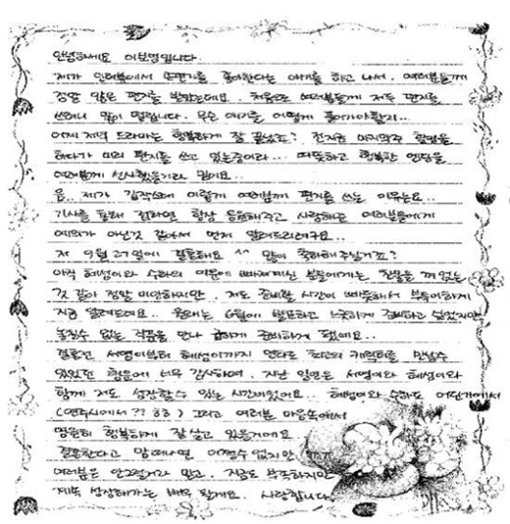 안녕하세요 이보영입니다
제가 인터뷰에서 손편지를 좋아한다는 얘기를 하고 나서, 여러분들께
정말 많은 편지를 받았는데요. 처음으로 여러분들께 저도 편지를
쓰려니 많이 떨립니다. 무슨 얘기를 어떻게 풀어가야할지...
어제 저녁 드라마는 행복하게 잘 끝났죠? 전 지금 마지막주 촬영을
하다가 미리 편지를 쓰고 있는중이라... 따뜻하고 행복한 엔딩을
여러분께 선사했을거라 믿어요..
음. 제가 갑작스레 이렇게 여러분께 편지를 쓰는 이유는요..
기사를 통해 전하면 항상 응원해주고 사랑해준 여러분들에게
예의가 아닌것 같아서 먼저 알려드리려구요..
저 9월 27일에 결혼해요 ^^ 많이 축하해주실거죠?
아직 혜성이와 수하의 여운에 빠져계신 분들에게는 찬물을 껴얹는
것 같아 정말 미안하지만, 저도 준비할 시간이 빠듯해서 부득이하게
지금 알려드려요.. 원래는 6월에 발표하고 느긋하게 준비하고 싶었지만
놓칠수 없는 작품을 만나 급하게 준비하게 됐네요..
결혼전 서영이부터 혜성이까지 연타로 최고의 캐릭터를 만날수
있었던 행운에 너무 감사하며, 지난 일년은 서영이와 혜성이와
함께 저도 성장할수 있는 시간이었어요.. 혜성이와 수하도 어딘가에서
(연주시에서?? ㅎㅎ) 그리고 여러분 마음속에서
영원히 행복하게 잘 살고 있을거에요
결혼한다고 맘떠나면 어쩔수 없지만
여러분은 안그럴거라 믿고, 지금도 부족하지만
계속 성장해가는 배우 될게요. 사랑합니다